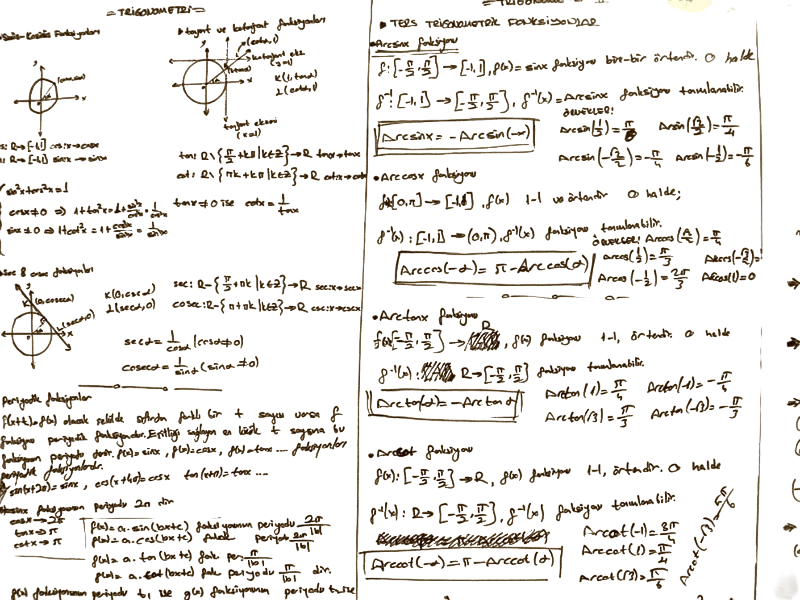 = TRİGONOMETRİ =
Sinüs-Kosinüs Fonksiyonları
tanjant ve kotanjant fonksiyonları
(cotα,1)
kotanjant eks.
(y=1)
K(1,tanα)
L(cotα,1)
tanjant ekseni
(x=1)
cos: R→[-1,1] cos:x→cosx
sin: R→[-1,1] sin:x→sinx
tan: R\{π/2+kπ|k∈Z}→R tan:x→tanx
cot: R\{πk+kπ|k∈Z}→R cot:x→cotx
sin²x+cos²x=1
cosx≠0 ⇒ 1+tan²x=1+sin²x/cos²x=1/cos²x
sinx≠0 ⇒ 1+cot²x=1+cos²x/sin²x=1/sin²x
tanx≠0 ise cotx=1/tanx
(0,cosecα)
K(0,cosecα)
L(secα,0)
sec: R-{π/2+πk|k∈Z}→R sec:x→secx
cosec: R-{π+πk|k∈Z}→R csc:x→cscx
secα=1/cosα (cosα≠0)
cosecα=1/sinα (sinα≠0)
Periyodik fonksiyonlar
f(x+t)=f(x) olacak şekilde sıfırdan farklı bir t sayısı varsa f
fonksiyonu periyodik fonksiyondur. Eşitliği sağlayan en küçük t sayısına bu
fonksiyonun periyodu denir. f(x)=sinx, f(x)=cosx, f(x)=tanx .... fonksiyonları
periyodik fonksiyonlardır.
sin(x+2π)=sinx, cos(x+4π)=cosx tan(x+π)=tanx ....
sinx fonksiyonun periyodu 2π dir
cosx→2π
tanx→π
cotx→π
f(x)=a.sin(bx+c) fonksiyonunun periyodu 2π/|b|
f(x)=a.cos(bx+c) periyot 2π/|b|
f(x)=a.tan(bx+c) fonk per: π/|b|
f(x)=a.cot(bx+c) fonk periyodu π/|b| dir.
f(x) fonksiyonunun periyodu t₁ ise g(x) fonksiyonunun periyodu t₂ ise
TERS TRİGONOMETRİK FONKSİYONLAR
•Arcsinx fonksiyonu
f:[-π/2,π/2]→[-1,1], f(x)=sinx fonksiyonu bire-bir örtendir. O halde
f⁻¹:[-1,1]→[-π/2,π/2], f⁻¹(x)=Arcsinx fonksiyonu tanımlanabilir.
ÖRNEKLER:
Arcsinx=-Arcsin(-x)
Arcsin(1/2)=π/6 Arcsin(√2/2)=π/4
Arcsin(-√2/2)=-π/4 Arcsin(-1/2)=-π/6
•Arccosx fonksiyonu
f:[0,π]→[-1,1], f(x) 1-1 ve örtendir O halde;
f⁻¹(x):[-1,1]→(0,π), f⁻¹(x) fonksiyonu tanımlanabilir.
Arccos(-α)=π-Arccos(α)
Arccos(1/2)=π/3
Arccos(-1/2)=2π/3 Arccos(1)=0
•Arctanx fonksiyonu
f(x)[-π/2,π/2]→R, f(x) fonksiyonu 1-1, örtendir. O halde
f⁻¹(x): R→[-π/2,π/2] fonksiyonu tanımlanabilir.
Arctan(α)=-Arctanα
Arctan(1)=π/4 Arctan(-1)=-π/4
Arctan(√3)=π/3 Arctan(-√3)=-π/3
•Arccot fonksiyonu
f(x):[-π/2,π/2]→R, f(x) fonksiyonu 1-1, örtendir. O halde
f⁻¹(x): R→[-π/2,π/2], f⁻¹(x) fonksiyonu tanımlanabilir.
Arccot(-α)=π-Arccot(α)
Arccot(-1)=3π/4
Arccot(1)=π/4
Arccot(√3)=π/6
Arccot(-√3)=5π/6